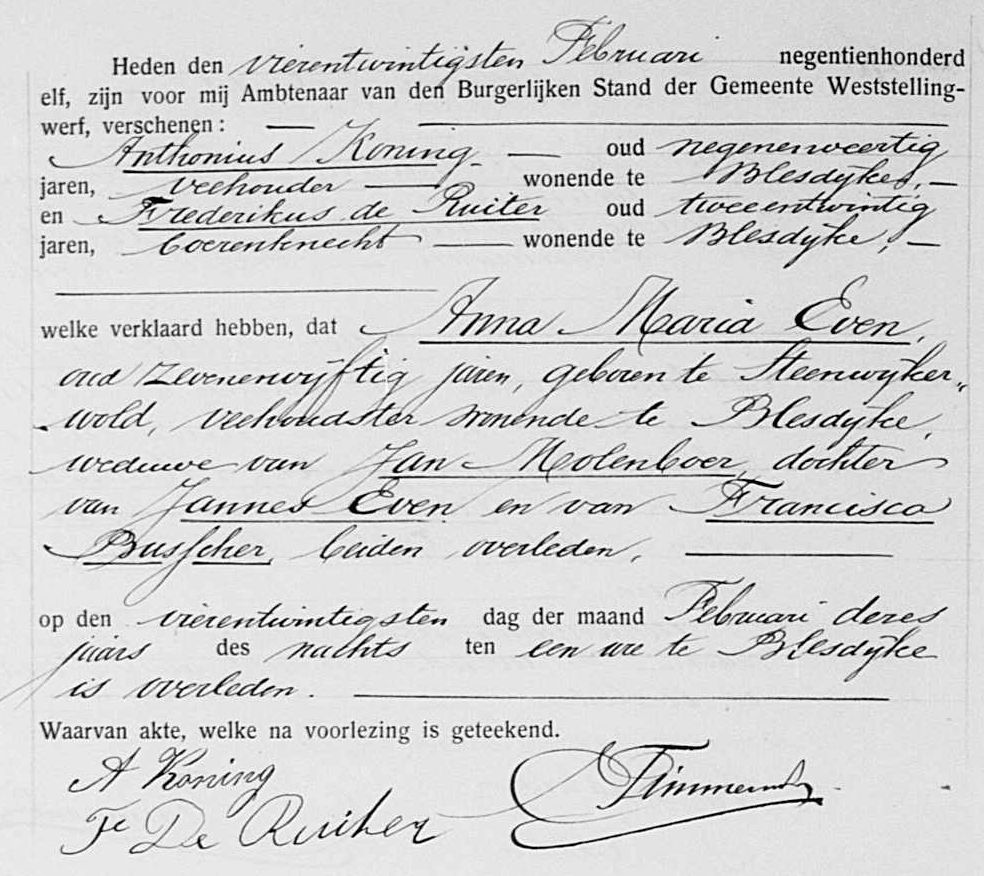 Heden den vierentwintigsten Februari negentienhonderd
elf, zijn voor mij Ambtenaar van den Burgerlijken Stand der Gemeente Weststelling-
werf, verschenen:
Anthonius Koning oud negenenveertig
jaren, veehouder wonende te Blesdijke,
en Frederikus de Ruiter oud tweeentwintig
jaren, boerenknecht wonende te Blesdijke,
welke verklaard hebben, dat Anna Maria Even,
oud zevenenvijftig jaren, geboren te Steenwijker„
wold, veehoudster wonende te Blesdijke,
weduwe van Jan Molenboer, dochter
van Jannes Even en van Francisca
Busscher, beiden overleden,
op den vierentwintigsten dag der maand Februari dezes
jaars des nachts ten een ure te Blesdijke
is overleden.
Waarvan akte, welke na voorlezing is geteekend.
A Koning
Fe De Ruiter